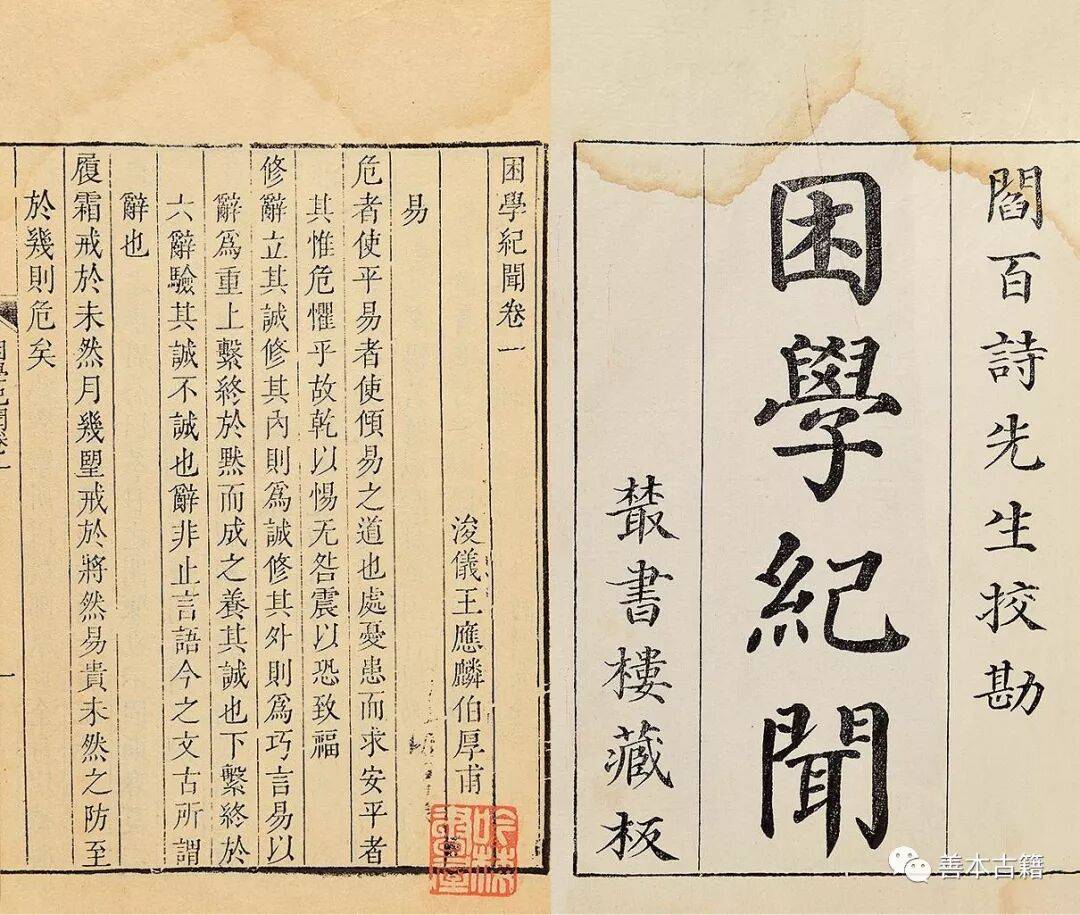 閻百詩先生挍勘
困學紀聞
叢書樓藏板
困學紀聞卷一
浚儀王應麟伯厚甫
易
危者使平易者使傾易之道也處憂患而求安平者
其惟危懼乎故乾以惕无咎震以恐致福
修辭立其誠修其內則爲誠修其外則爲巧言易以
辭爲重上繫終於默而成之養其誠也下繫終於
六辭驗其誠不誠也辭非止言語今之文古所謂
辭也
履霜戒於未然月幾朢戒於將然易貴未然之防至
於幾則危矣
困學紀聞卷一
一
善本古籍